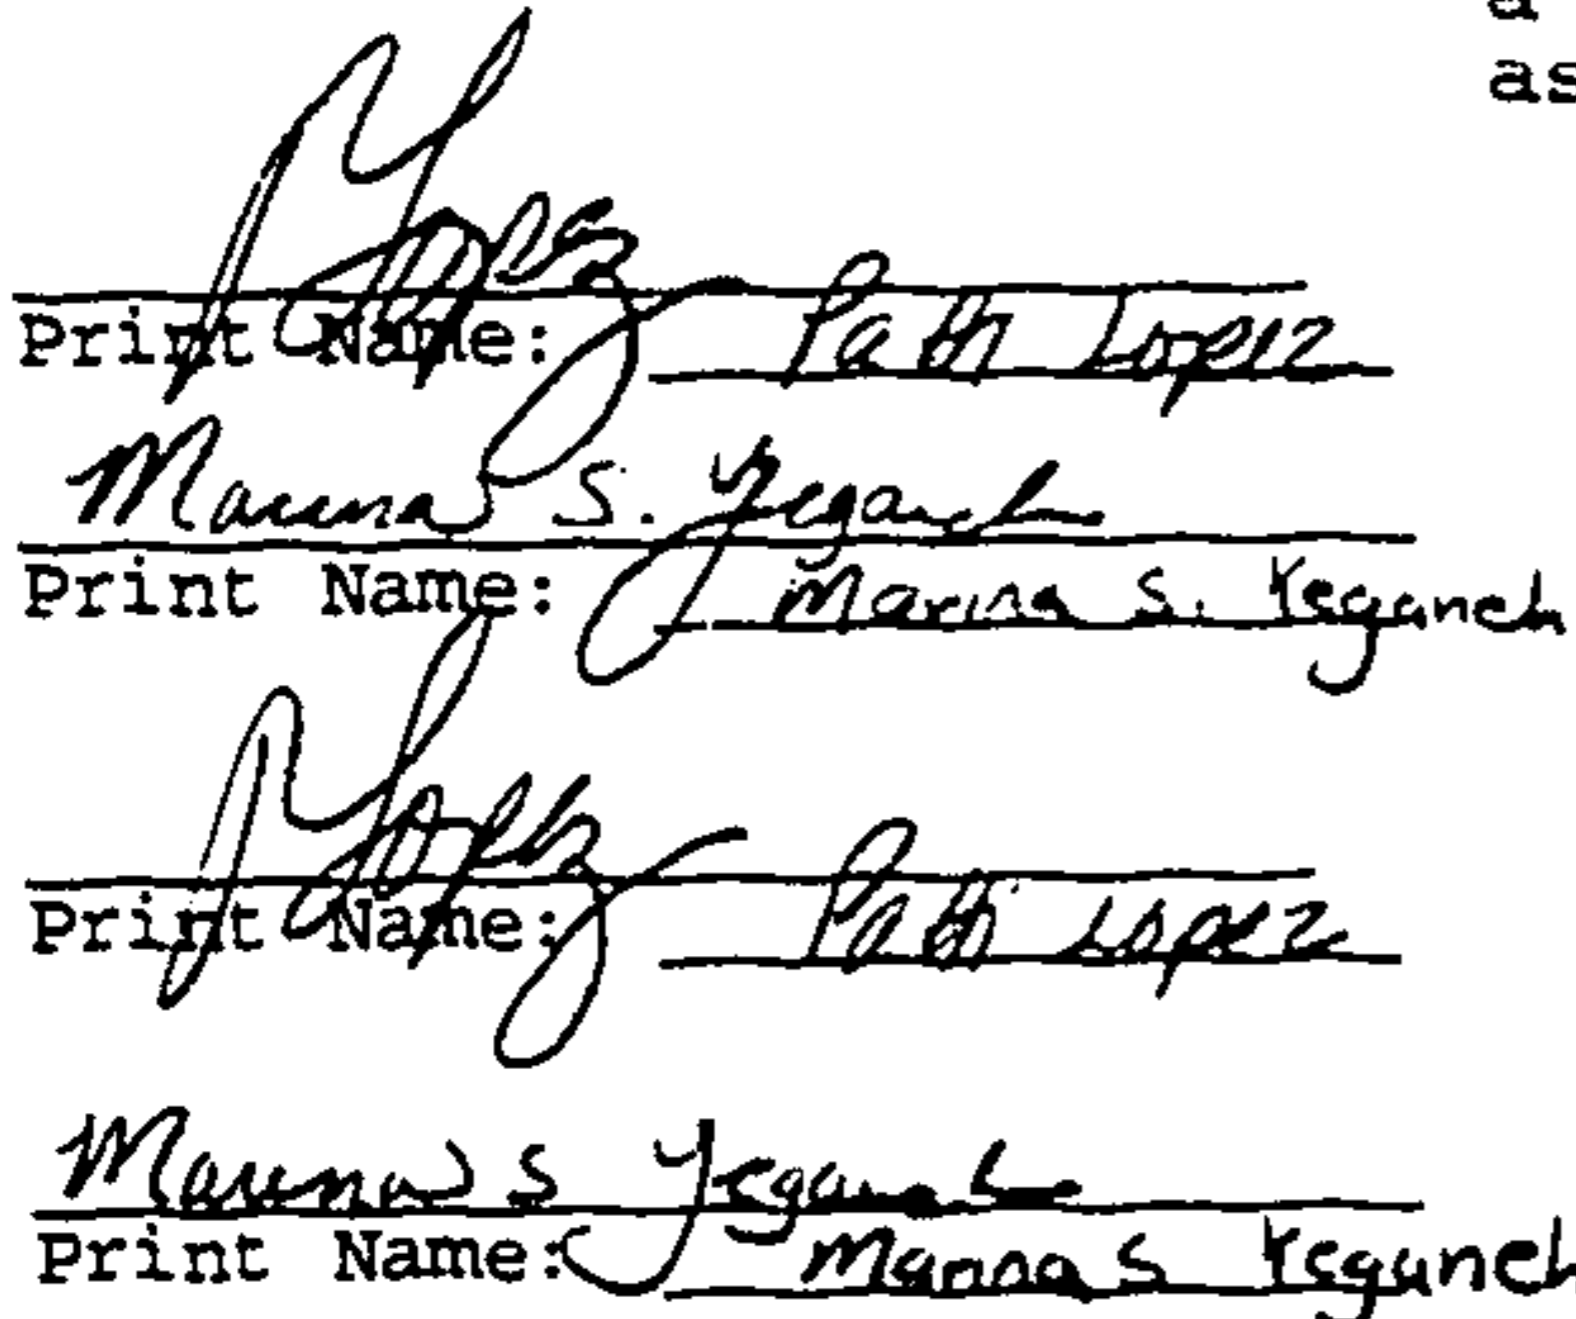 a
as
P Lopez
Print Name: Patti Lopez
Marina S. Yeganeh
Print Name: Marina S. Yeganeh
P Lopez
Print Name: Patti Lopez
Marina S Yeganeh
Print Name: Marina S Yeganeh